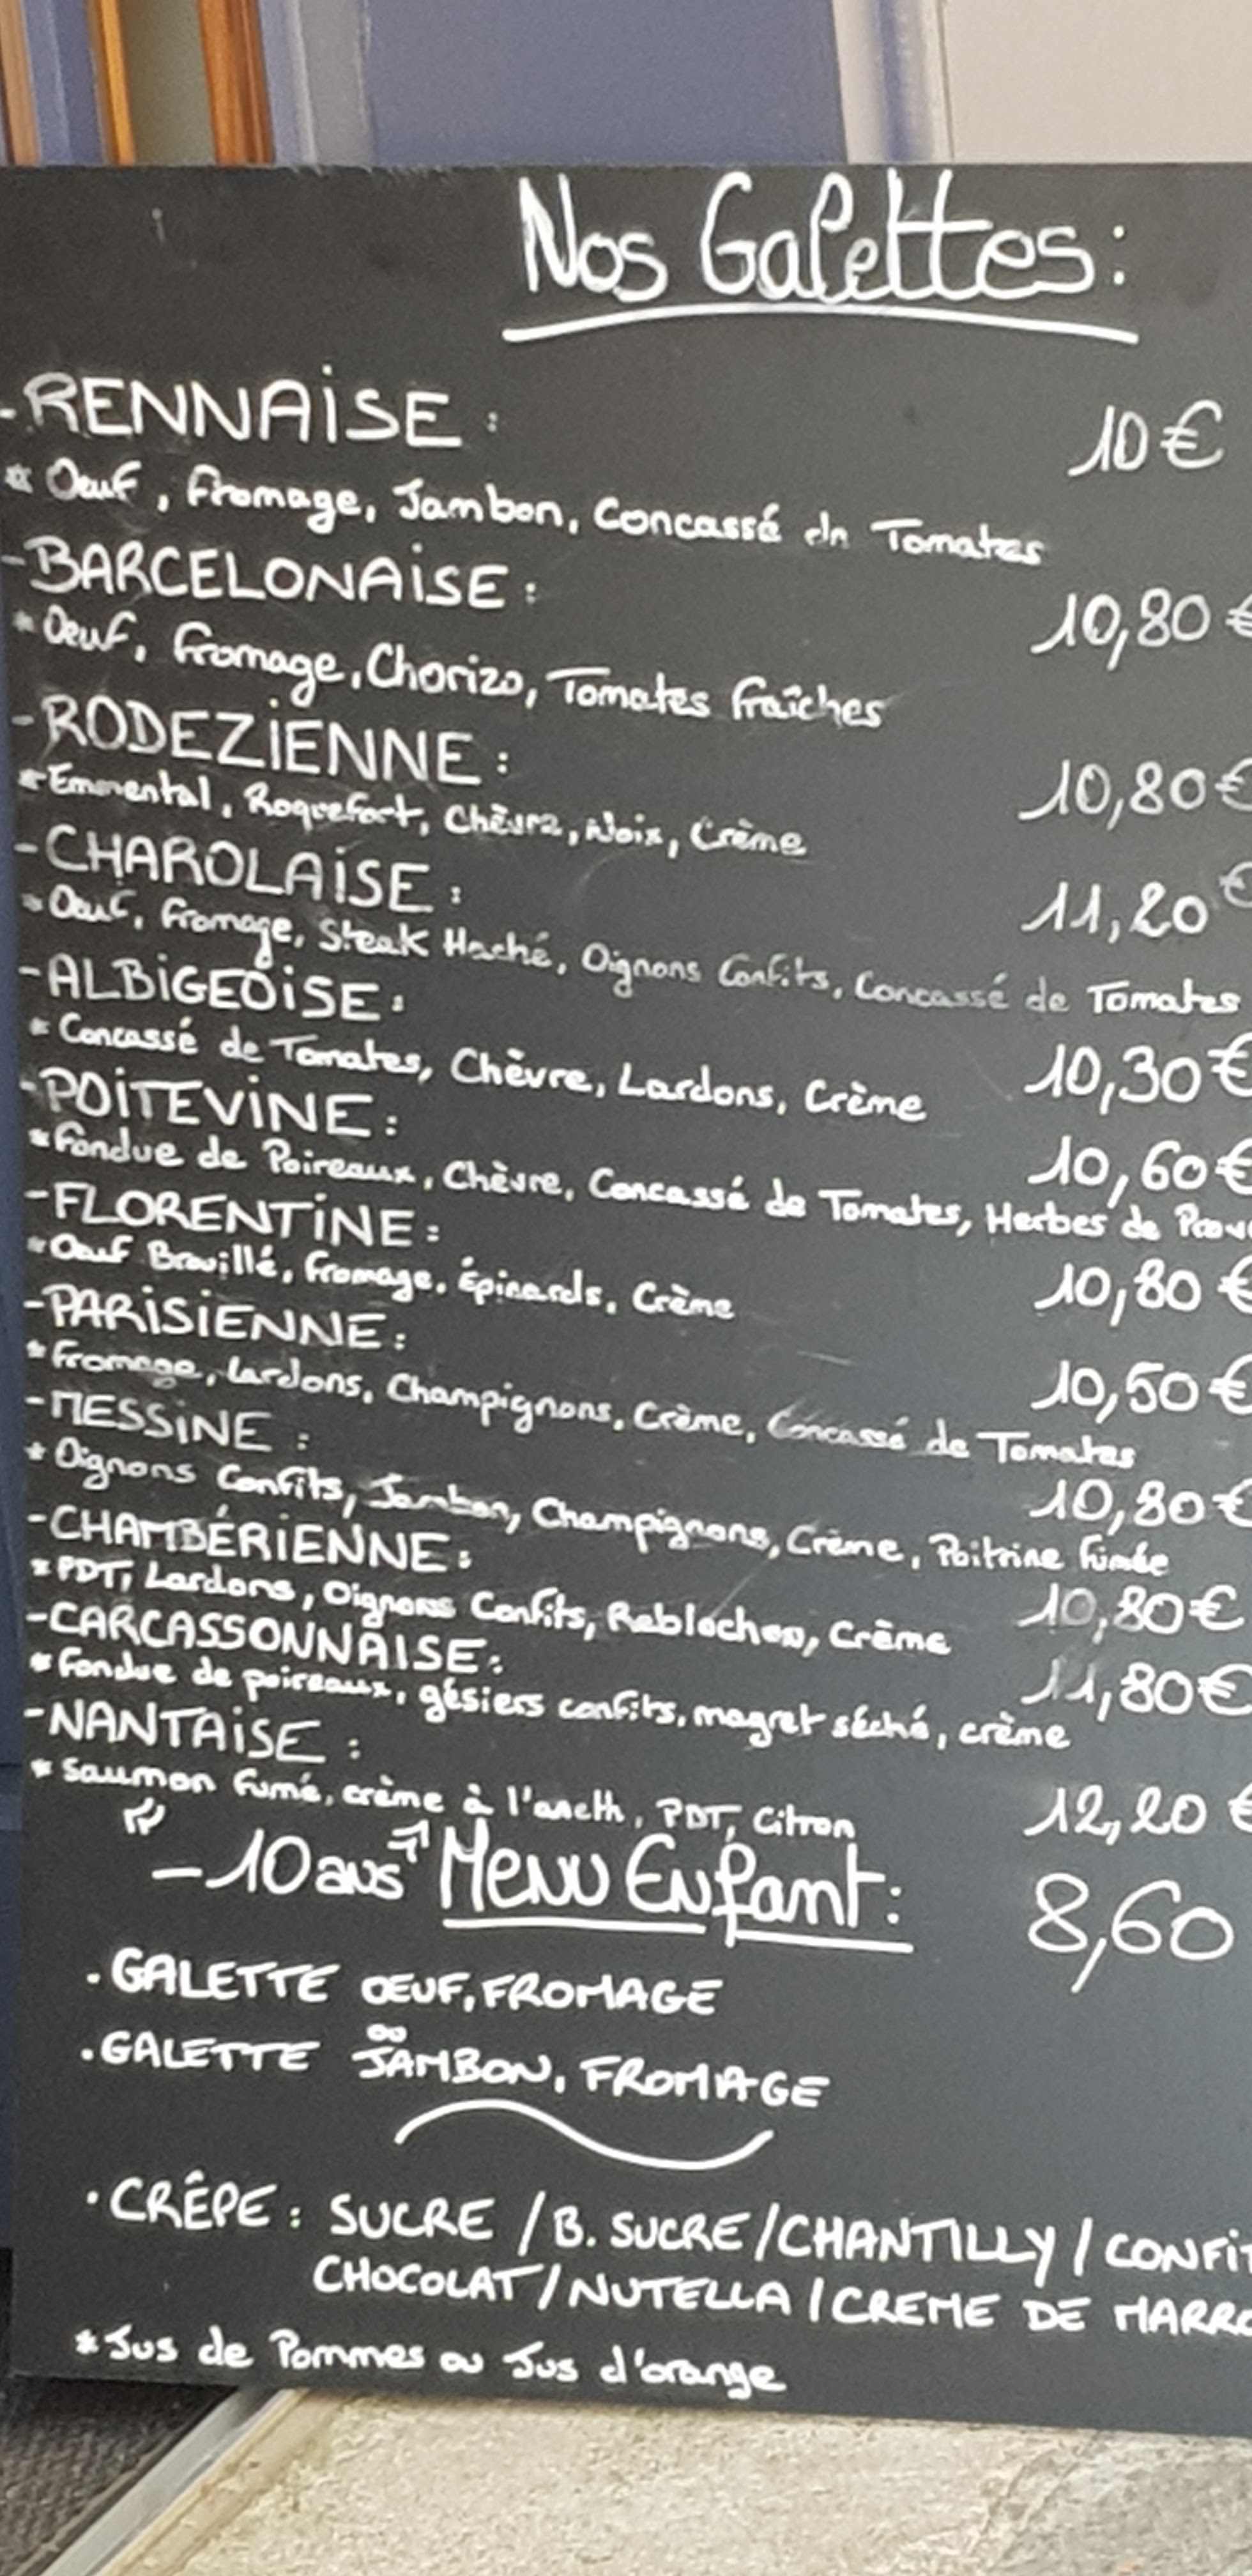 Nos Galettes:
-RENNAISE: 10€
* Oeuf, Fromage, Jambon, Concassé de Tomates
-BARCELONAISE: 10,80€
* Oeuf, Fromage, Chorizo, Tomates fraîches
-RODEZIENNE: 10,80€
* Emmental, Roquefort, Chèvre, Noix, Crème
-CHAROLAISE: 11,20€
* Oeuf, Fromage, Steak Haché, Oignons Confits, Concassé de Tomates
-ALBIGEOISE: 10,30€
* Concassé de Tomates, Chèvre, Lardons, Crème
-POITEVINE: 10,60€
* Fondue de Poireaux, Chèvre, Concassé de Tomates, Herbes de Prov
-FLORENTINE: 10,80€
* Oeuf Brouillé, Fromage, Épinards, Crème
-PARISIENNE: 10,50€
* Fromage, Lardons, Champignons, Crème, Concassé de Tomates
-MESSINE: 10,80€
* Oignons Confits, Jambon, Champignons, Crème, Poitrine fumée
-CHAMBÉRIENNE: 10,80€
* PDT, Lardons, Oignons Confits, Reblochon, Crème
-CARCASSONNAISE: 11,80€
* Fondue de poireaux, gésiers confits, magret séché, crème
-NANTAISE: 12,20€
* Saumon fumé, crème à l'aneth, PDT, Citron
"-10 ans" Menu Enfant: 8,60
. GALETTE OEUF, FROMAGE
ou
. GALETTE JAMBON, FROMAGE
. CRÊPE: SUCRE / B. SUCRE / CHANTILLY / CONFIT
CHOCOLAT / NUTELLA / CREME DE MARRO
* Jus de Pommes ou Jus d'orange